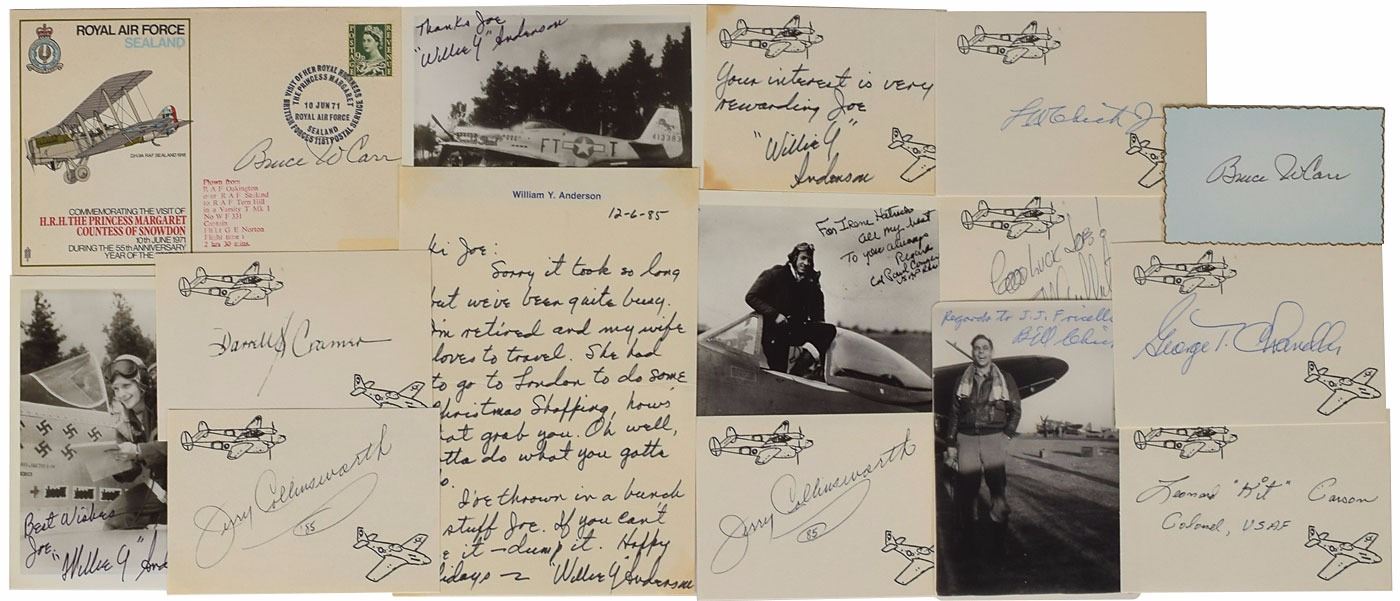 ROYAL AIR FORCE
SEALAND
VISIT OF HER ROYAL HIGHNESS
THE PRINCESS MARGARET
10 JUN 71
ROYAL AIR FORCE
SEALAND
BRITISH FORCES 1181 POSTAL SERVICE
Bruce W Carr
DH.9A RAF SEALAND 1918
Flown from
R A F Oakington
over R A F Sealand
to R A F Tern Hill
in a Varsity T Mk 1
No W F 331
Captain
Flt Lt G E Norton
Flight time
2 hrs 30 mins.
COMMEMORATING THE VISIT OF
H.R.H. THE PRINCESS MARGARET
COUNTESS OF SNOWDON
10th JUNE 1971
DURING THE 55th ANNIVERSARY
YEAR OF THE
Thanks Joe
"Willie Y" Anderson
FT T
413383
Your interest is very
rewarding Joe
"Willie Y"
Anderson
Bruce W Carr
William Y. Anderson
12-6-85
Hi Joe:
Sorry it took so long
but we've been quite busy.
I'm retired and my wife
loves to travel. She had
to go to London to do some
Christmas Shopping, hows
that grab you. Oh well,
gotta do what you gotta
I've thrown in a bunch
stuff Joe. If you can't
it - dump it. Happy
"Willie Y" Anderson
For Irene
all my best
To you always
Regards
Col Paul
USAF
Good Luck
Darrell S Cramer
Regards to J.J.
Bill
George T. Chandler
Best Wishes
Joe.
"Willie Y"
Jerry Collinsworth
'85
Jerry Collinsworth
85
Leonard "Kit" Carson
Colonel, USAF